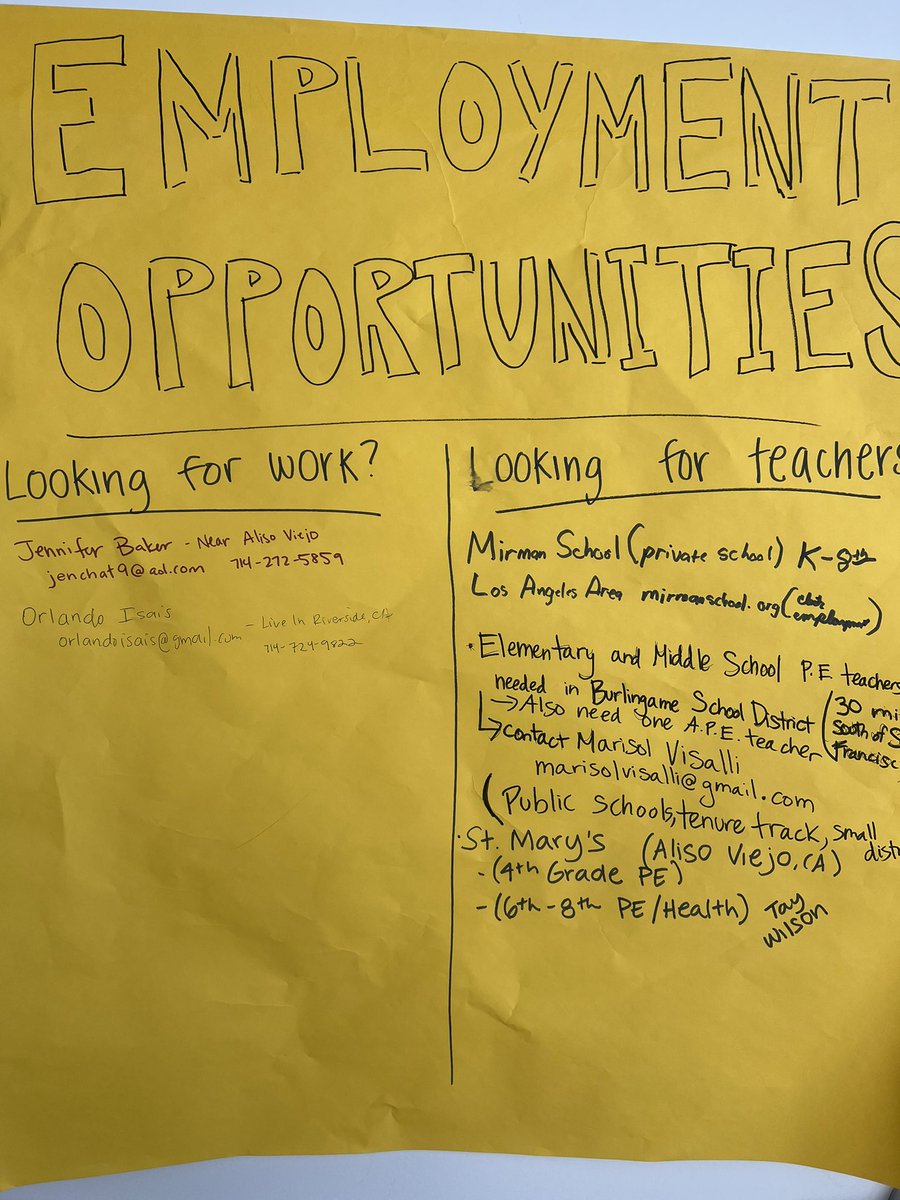 EMPLOYMENT
OPPORTUNITIES
Looking for work?
Jennifer Baker - Near Aliso Viejo
jenchat9@aol.com 714-272-5859
Orlando Isais
orlandoisais@gmail.com
- Live In Riverside, CA
714-724-9822
Looking for teachers
Mirman School (private school) K-8th
Los Angeles Area mirmanschool.org (click
employment)
• Elementary and Middle School P.E teachers
needed in Burlingame School District (30 mi
South of S
Francisc
→ Also need one A.P.E. teacher
→ contact Marisol Visalli
marisolvisalli@gmail.com
(Public schools, tenure track, small
distr
• St. Mary's (Aliso Viejo, CA)
- (4th Grade PE)
- (6th-8th PE/Health) Tay
Wilson